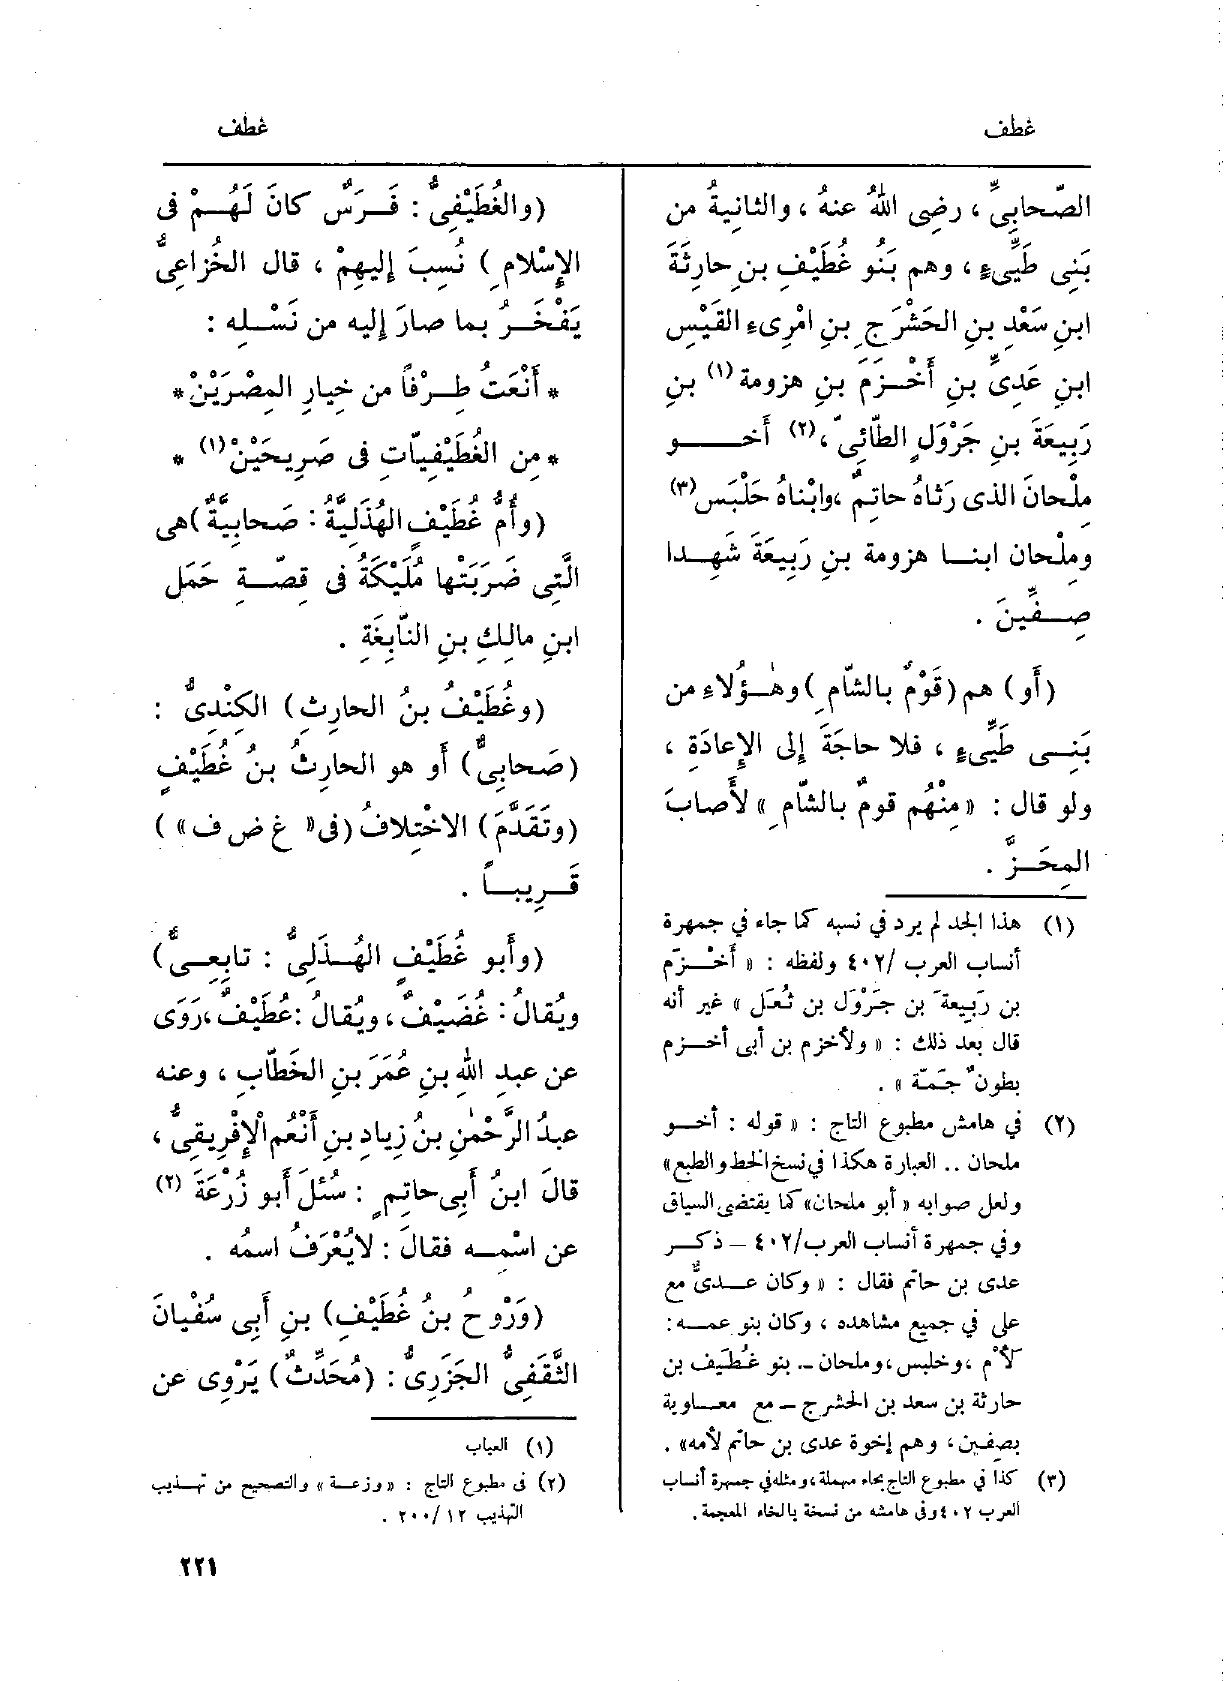 غطف
غطف
الصّحابِىِّ ، رضِى اللهُ عنهُ ، والثانِيةُ من
بَنِى طَيِّىءٍ ، وهم بَنُو غُطَيْفِ بنِ حارِثَةَ
ابنِ سَعْدِ بنِ الحَشْرَجِ بنِ امْرِىءِ القَيْسِ
ابنِ عَدِىِّ بنِ أَخْــزَمَ بنِ هزومة (١) بنِ
رَبِيعَةَ بنِ جَرْوَلٍ الطّائِىّ ،(٢) أَخـــــو
مِلْحانَ الذى رَثاهُ حاتِمٌ ،وابْناهُ حَلْبَس(٣)
ومِلْحان ابنــا هزومة بنِ رَبِيعَةَ شَهِــدا
صِــفِّينَ .
(أَو) هم (قَوْمٌ بالشّامِ) وهٰــؤُلاءِ من
بَنِــى طَيِّىءٍ ، فلا حاجَةَ إلى الإِعادَةِ ،
ولو قال : «مِنْهُم قومٌ بالشّامِ » لأَصابَ
المِحَــزَّ .
(١) هذا الجد لم يرد في نسبه كما جاء في جمهرة
أنساب العرب /٤٠٢ ولفظه : « أَخْــزَم
بن رَبيعة َ بن جَرْوَل بن ثُعَل » غير أنه
قال بعد ذلك : « ولأخزم بن أبى أخــزم
بطون ٌ جَمّة » .
(٢) في هامش مطبوع التاج : « قوله : أخــو
ملحان .. العبارة هكذا في نسخ الخط والطبع»
ولعل صوابه « أبو ملحان» كما يقتضى السياق
وفي جمهرة أنساب العرب/٤٠٢ – ذكــر
عدى بن حاتم فقال : « وكان عــدىٌّ مع
على في جميع مشاهده ، وكان بنو عمــه:
لأْم ،وحلبس ،وملحان – بنو غُطَيف بن
حارثة بن سعد بن الحشرج – مع معــاوية
بصِفِين ، وهم إخوة عدى بن حاتم لأمه» .
(٣) كذا في مطبوع التاج بحاء مهملة ،ومثله في جمهرة أنساب
العرب ٤٠٢ وفى هامشه من نسخة بالخاء المعجمة .
(والغُطَيْفِىُّ : فَــرَسٌ كانَ لَهُــمْ فى
الإِسْلامِ ) نُسِبَ إِليهِمْ ، قال الخُزاعِىُّ
يَفْخَــرُ بما صارَ إِليه من نَسْــلِه :
* أَنْعَتُ طِــرْفاً من خِيارِ المِصْرَيْنْ *
* مِن الغُطَيْفِيّاتِ فى صَرِيحَيْنْ (١) *
(وأُمُّ غُطَيْفٍ الهُذَلِيَّةُ : صَحابِيَّةٌ )هى
الَّتِى ضَرَبَتْها مُلَيْكَةُ فى قِصّــةِ حَمَل
ابنِ مالِكِ بنِ النّابِغَةِ .
(وغُطَيْفُ بنُ الحارِثِ) الكِنْدِىُّ :
(صَحابِىٌّ) أَو هو الحارِثُ بنُ غُطَيْفٍ
(وتَقَدَّمَ) الاخْتِلافُ (فى« غ ض ف» )
قَــرِيبــاً .
(وأَبو غُطَيْفٍ الهُــذَلِىُّ : تابِعِــىٌّ)
ويُقالُ : غُضَيْفٌ ، ويُقالُ :غُطَيْفٌ ،رَوَى
عن عبدِ اللهِ بنِ عُمَرَ بنِ الخَطّابِ ، وعنه
عبدُ الرَّحْمٰنِ بنُ زِيادِ بنِ أَنْعُمِ الإِفْرِيقِىُّ ،
قالَ ابنُ أَبِى حاتِمٍ : سُئلَ أَبو زُرْعَةَ (٢)
عن اسْمِــه فقالَ : لايُعْرَفُ اسمُه .
(وَرَوْحُ بنُ غُطَيْفِ) بنِ أَبِى سُفْيانَ
الثَّقَفِىُّ الجَزَرِىُّ : (مُحَدِّثٌ) يَرْوِى عن
(١) العباب
(٢) فى مطبوع التاج : «وزعــة » والتصحيح من تهــذيب
التهذيب ١٢ /٢٠٠ .
٢٢١